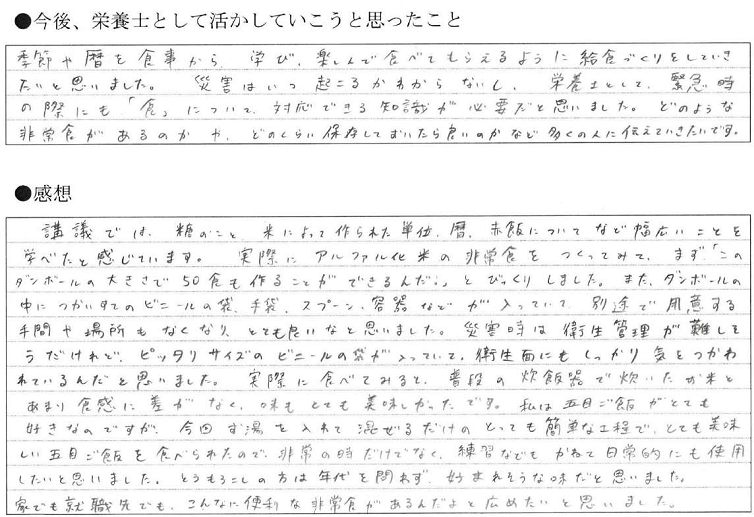 ●今後、栄養士として活かしていこうと思ったこと
季節や暦を食事から、学び、楽しんで食べてもらえるように給食づくりをしていき
たいと思いました。災害はいつ起こるかわからないし、栄養士として、緊急時
の際にも「食」について、対応できる知識が必要だと思いました。どのような
非常食があるのかや、どのくらい保存しておいたら良いのかなど多くの人に伝えていきたいです。
●感想
講義では、糖のこと、米によって作られた単位、暦、赤飯についてなど幅広いことを
学べたと感じています。実際にアルファル化米の非常食をつくってみて、まず「この
ダンボールの大きさで50食も作ることができるんだ。」とびっくりしました。また、ダンボールの
中につかいすてのビニールの袋、手袋、スプーン、容器などが入っていて、別途で用意する
手間や場所もなくなり、とても良いなと思いました。災害時は衛生管理が難しそ
うだけれど、ピッタリサイズのビニールの袋が入っていて、衛生面にもしっかり気をつかわ
れているんだと思いました。実際に食べてみると、普段の炊飯器で炊いたお米と
あまり食感に差がなく、味もとても美味しかったです。私は五目ご飯がとても
好きなのですが、今回お湯を入れて混ぜるだけのとっても簡単な工程で、とても美味
しい五目ご飯を食べられたので、非常の時だけでなく、練習なども かねて日常的にも使用
したいと思いました。とうもろこしの方は年代を問わず、好まれそうな味だと思いました。
家でも就職先でも、こんなに便利な非常食があるんだよと広めたいと思いました。